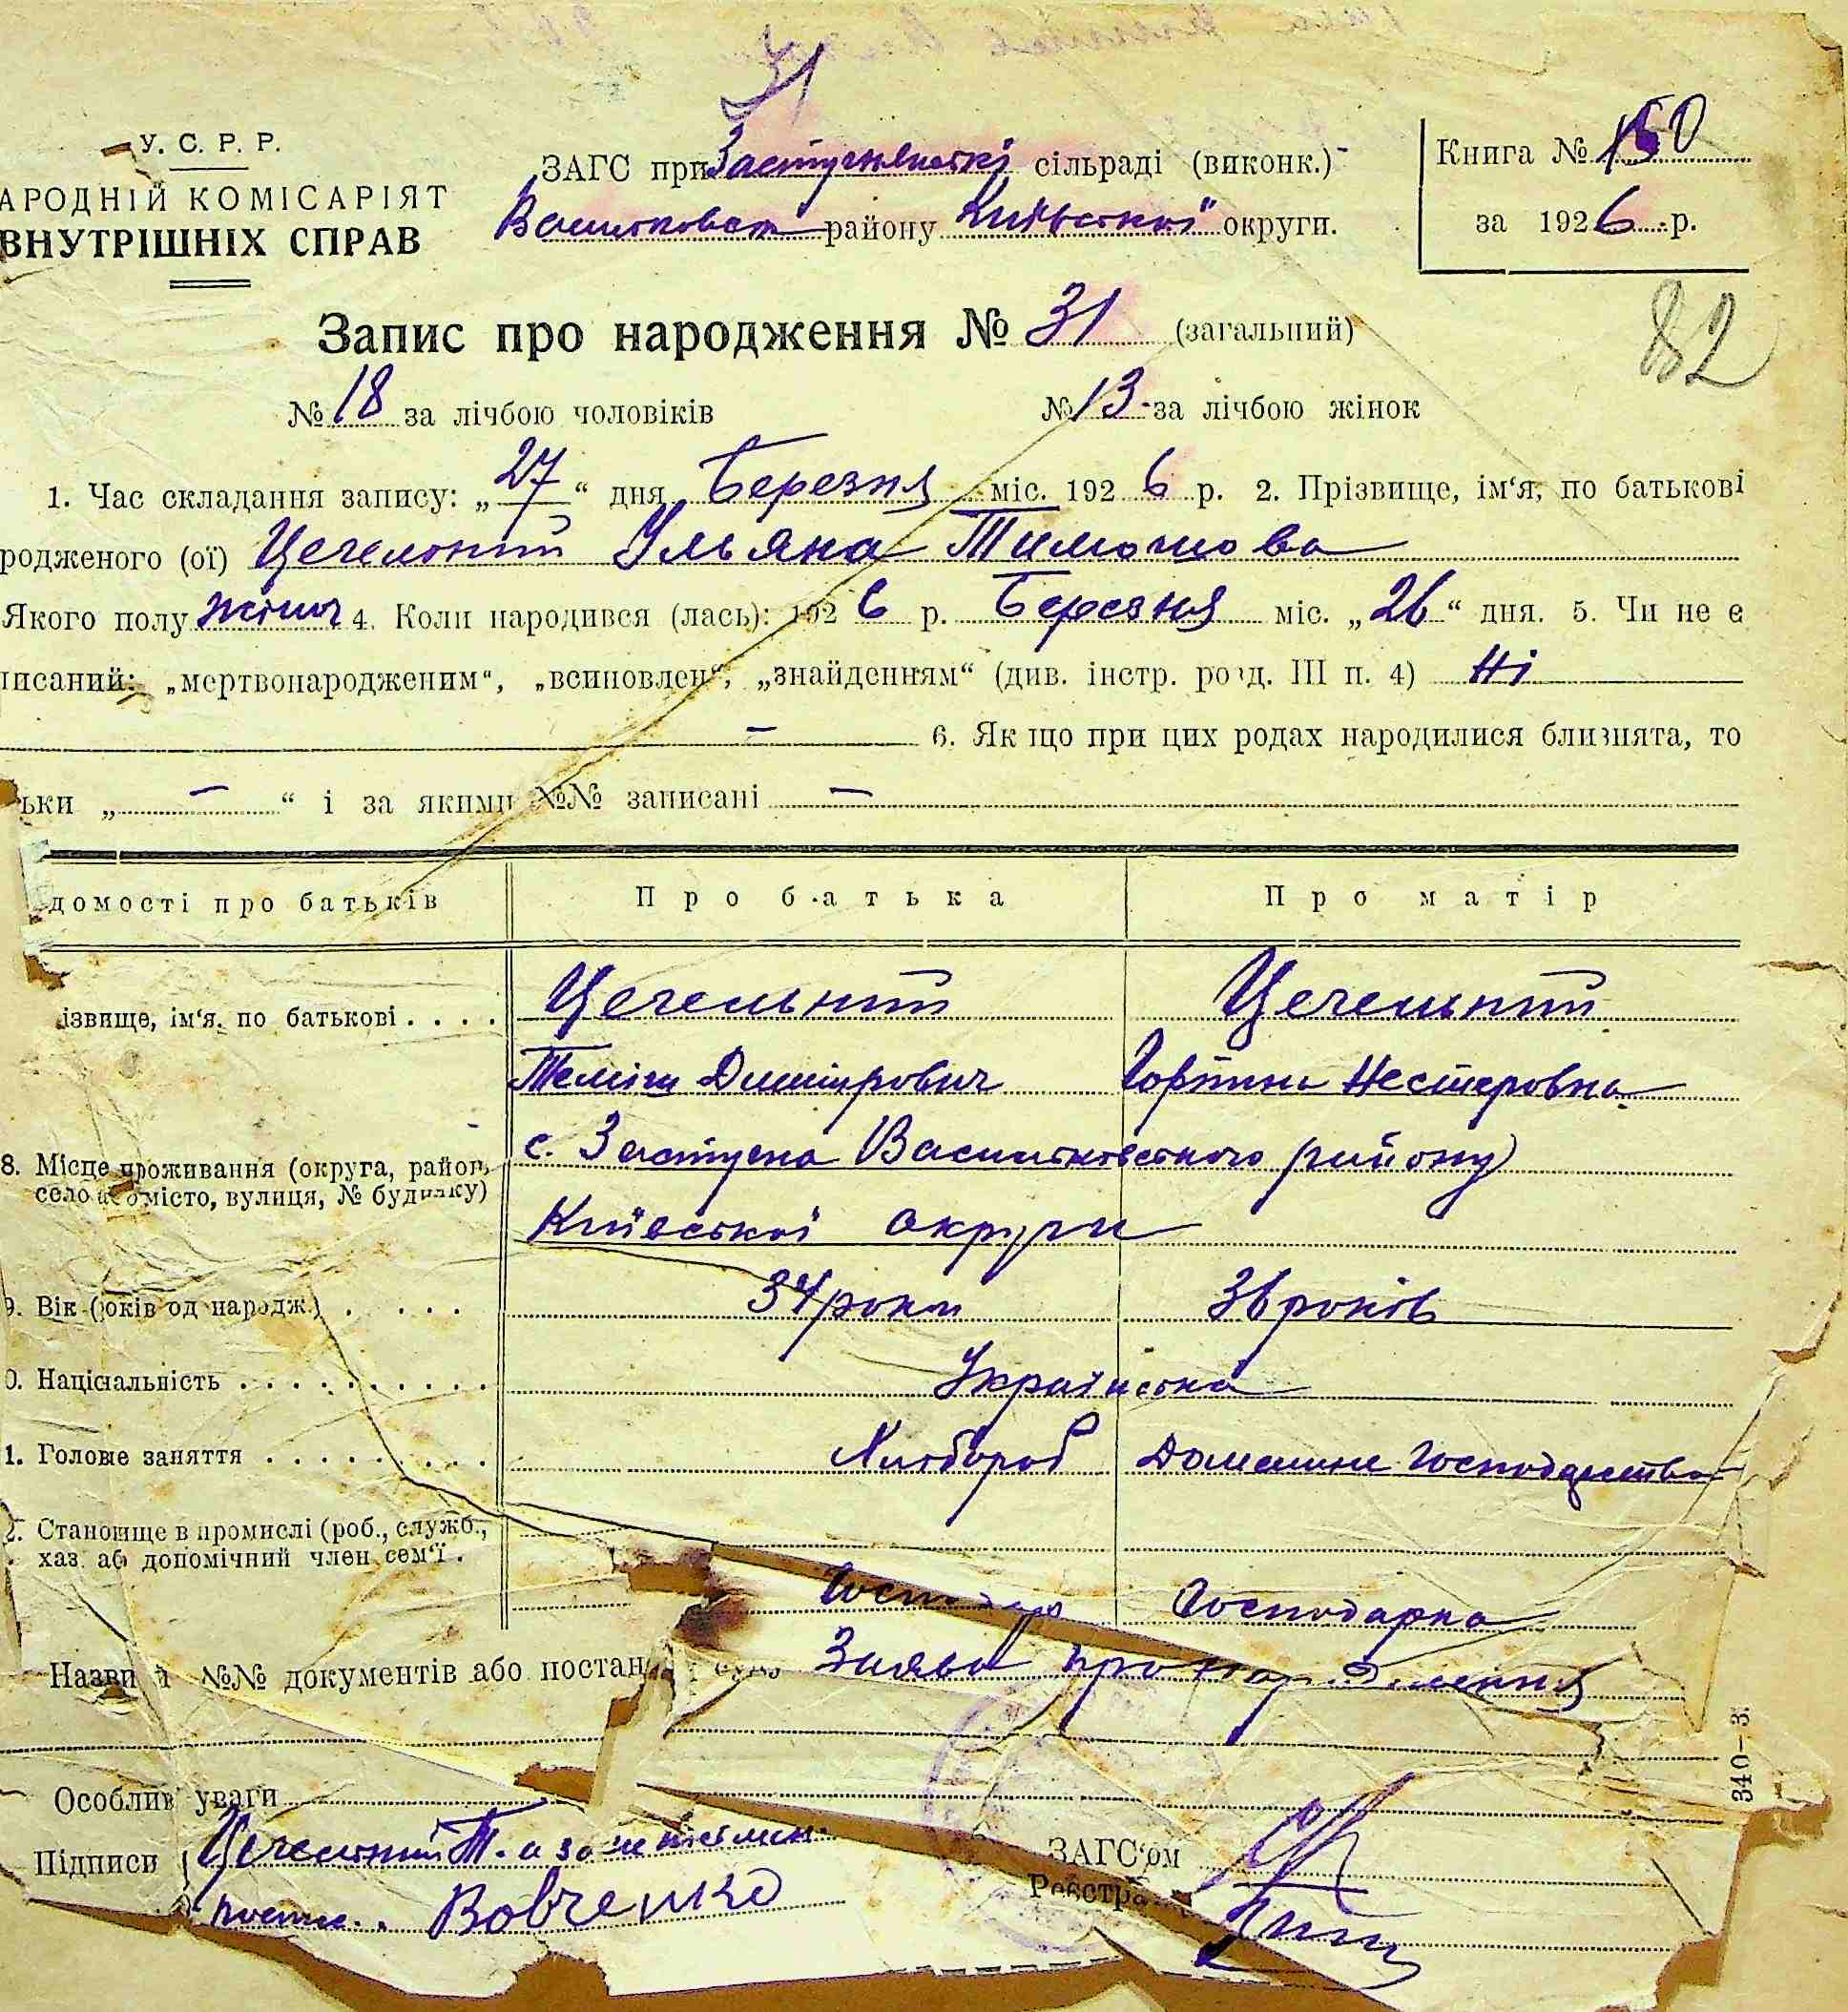 31
У. С. Р. Р.
АРОДНІЙ КОМІСАРІЯТ
ВНУТРІШНІХ СПРАВ
ЗАГС при Застугнянскі сільраді (виконк.)
Васильковськ району Київської округи.
Книга № 150
за 1926 р.
Запис про народження № 31 (загальний)
82
№ 18 за лічбою чоловіків № 13 за лічбою жінок
1. Час складання запису: „27“ дня Березня міс. 1926 р. 2. Прізвище, ім‘я, по батькові
родженого (ої) Цегельний Ульяна Тимошова
Якого полу жіноч 4. Коли народився (лась): 1926 р. Березня міс. „26“ дня. 5. Чи не є
писаний: „мертвонародженим“, „всиновлен“, „знайденням“ (див. інстр. розд. III п. 4) Ні
— 6. Якщо при цих родах народилися близнята, то
ьки „ — “ і за якими №№ записані —
домості про батьків Про батька Про матір
ізвище, ім‘я, по батькові . . . . Цегельний Цегельний
Теміш Дмитрович Горпина Нестеровна
8. Місце проживання (округа, район,
село або місто, вулиця, № будинку)
с. Застугна Васильковського району
Київської округи
9. Вік (років од народж.) . . . . 34 роки 36 років
0. Національність . . . . . . . . . . Українська
1. Головне заняття . . . . . . . . . Хлібороб Домашнє господарство
2. Становище в промислі (роб., служб.,
хаз. аб допомічний член сем‘ї .
Господар Господарка
Назви і №№ документів або постан суду Заява про народження
Особлив уваги
Підписи Цегельний Т. а за
Вовченко
ЗАГС‘ом
Реєстра
340—3.